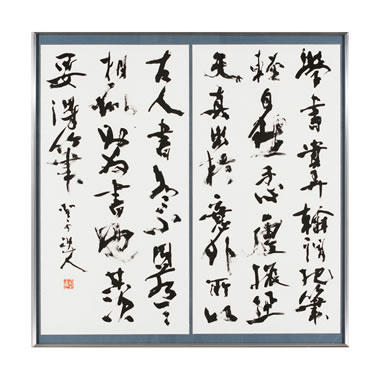 學書貴弄翰謂把筆
輕自然手心虛振迅
天真出於意外所以
古人書各各不同若一一
相似則奴書也其次
要得筆